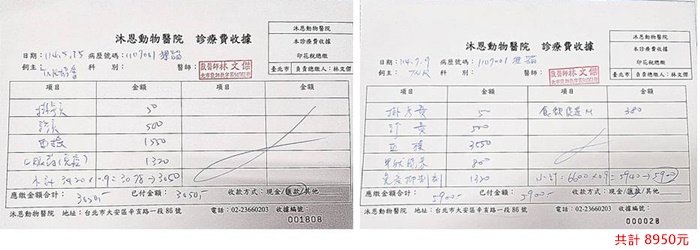 沐恩動物醫院 診療費收據
日期：114.5.25 病歷號碼：1107061
飼主：TNR協會 科別： 醫師：獸醫師林文傑
沐恩動物醫院
本診療費收據
印花稅總繳
臺北市 負責總繳人：林文傑
項目 金額 項目 金額
掛號 50
診 500
血檢 1550
1320
小計 3420×0.9=3078→3050
應繳金額合計：3050.- 已付金額：3050.- 收款方式：現金/匯款/其他
沐恩動物醫院 地址：台北市大安區辛亥路一段86號 電話：02-23660203 收據編號：
001808
沐恩動物醫院 診療費收據
日期：114.9.9 病歷號碼：1107061
飼主：TNR 科別： 醫師：獸醫師林文傑
沐恩動物醫院
本診療費收據
印花稅總繳
臺北市 負責總繳人：林文傑
項目 金額 項目 金額
掛號費 50 380
診費 500
血檢 3550
800
1320 小計：6600×0.9=5940→5900
應繳金額合計：5900.- 已付金額：5900.- 收款方式：現金/匯款/其他
沐恩動物醫院 地址：台北市大安區辛亥路一段86號 電話：02-23660203 收據編號：
000028
共計 8950元